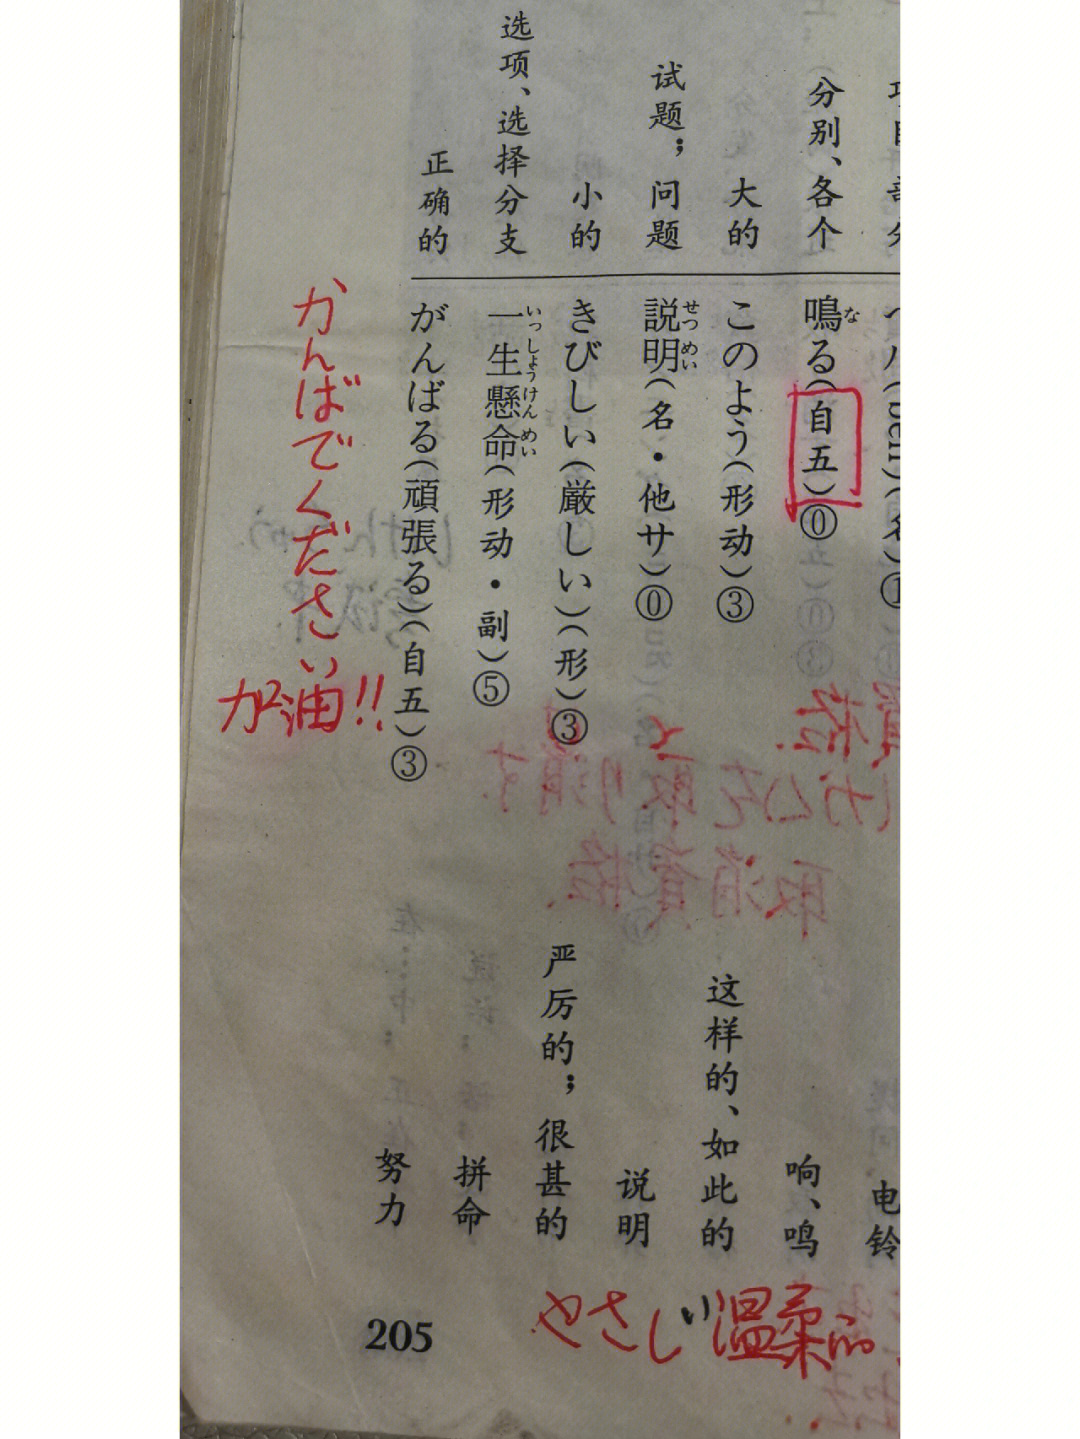 分别、各个
大的
试题；问题
小的
选项、选择分支
正确的
鳴る(自五)⓪
な
电铃
响、鸣
このよう(形动)③
这样的、如此的
説明(名・他サ)⓪
せつめい
说明
きびしい(厳しい)(形)③
严厉的；很甚的
一生懸命(形动・副)⑤
いっしょうけんめい
拼命
がんばる(頑張る)(自五)③
努力
かんばでください
加油!!
やさしい温柔的
205